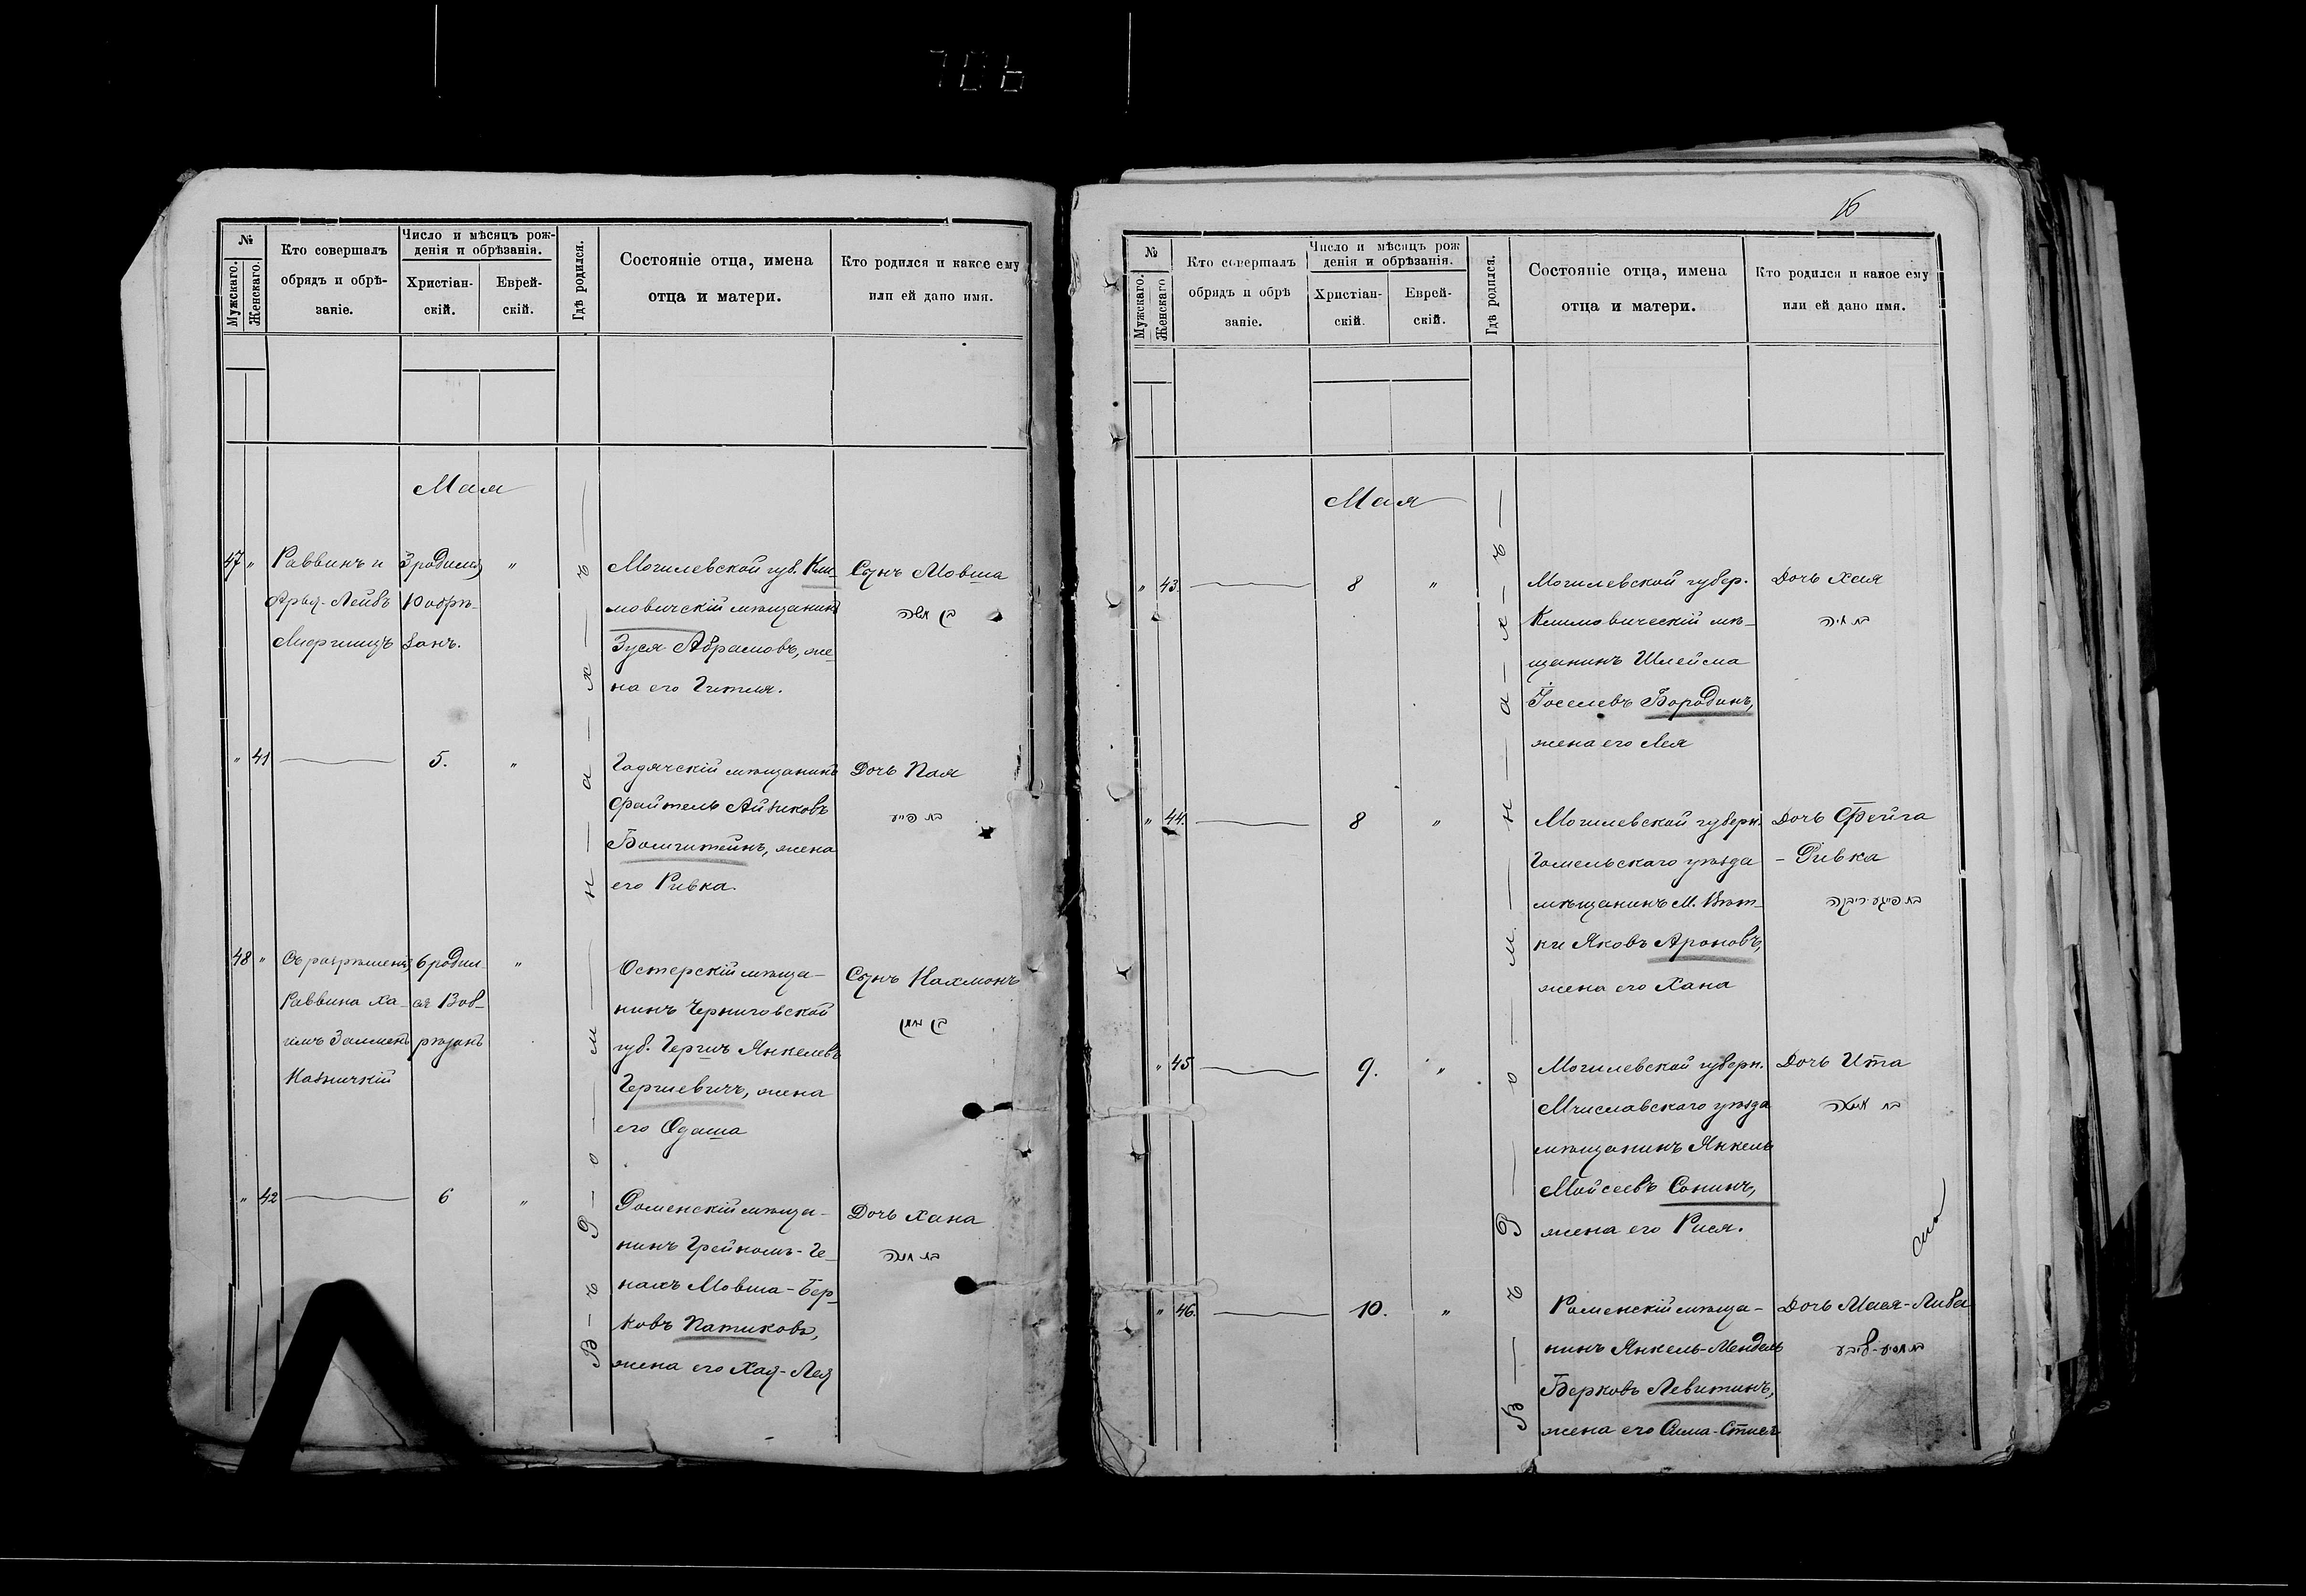 706
№
Мужскаго.
Женскаго.
Кто совершалъ
обрядъ и обрѣ-
заніе.
Число и мѣсяцъ рож-
денія и обрѣзанія.
Христіан-
скій.
Еврей-
скій.
Гдѣ родился.
Состояніе отца, имена
отца и матери.
Кто родился и какое ему
или ей дано имя.
Мая
В — ъ Р — о — м — н — а — х — ъ
47 "
Раввинъ и
Арья-Лейбъ
3 родился
10 обрѣ-
занъ.
"
Могилевской губ. Кли-
мовичскій мѣщанинъ
Зуся Абрамовъ, же-
на его Гителя.
Сынъ Мовша
בן משה
" 41
5.
"
Гадячскій мѣщанинъ
Файтель Айзиковъ
Бомштейнъ, жена
его Ривка.
Дочь Пая
בת פייע
48 "
Съ разрѣшенія
Раввина Ха-
имъ Залменъ
6 родил-
ся 13 об-
рѣзанъ
"
Остерскій мѣща-
нинъ Черниговской
губ. Гершъ Янкелевъ
Гершевичъ, жена
его Одаша
Сынъ Нахмонъ
בן נחמן
" 42
6
"
Роменскій мѣща-
нинъ Грейномъ-Ге-
нахъ Мовша-Бер-
ковъ Патиковъ,
жена его Хая-Лея
Дочь Хана
בת חנה
16
№
Мужскаго.
Женскаго
Кто совершалъ
обрядъ и обрѣ
заніе.
Число и мѣсяцъ рож
денія и обрѣзанія.
Христіан-
скій.
Еврей-
скій.
Гдѣ родился.
Состояніе отца, имена
отца и матери.
Кто родился и какое ему
или ей дано имя.
Мая
В — ъ Р — о — м — н — а — х — ъ
" 43.
8
"
Могилевской губер.
Климовическій мѣ-
щанинъ Шлейма
Іоселевъ Бородинъ,
жена его Лея
Дочь Хая
בת חיה
" 44.
8
"
Могилевской губерн.
Гомельскаго уѣзда
мѣщанинъ М. Вѣт-
ки Яковъ Ароновъ,
жена его Хана
Дочь Фейга
- Ривка
בת פייגע ריבקה
" 45
9.
"
Могилевской губерн.
Мчиславскаго уѣзда
мѣщанинъ Янкель
Мойсеевъ Сонинъ,
жена его Рися.
Дочь Ита
" 46.
10.
"
Роменскій мѣща-
нинъ Янкель-Мендель
Берковъ Левитинъ,
жена его
Дочь Мася-Либа